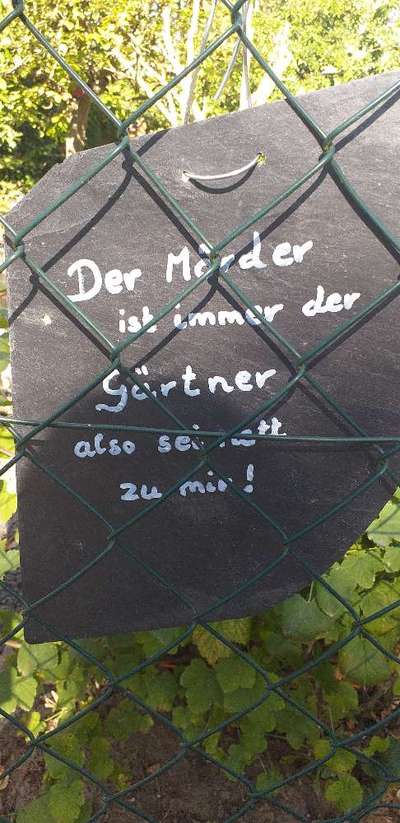 Der Mörder
ist immer der
Gärtner
also sei nett
zu mir!